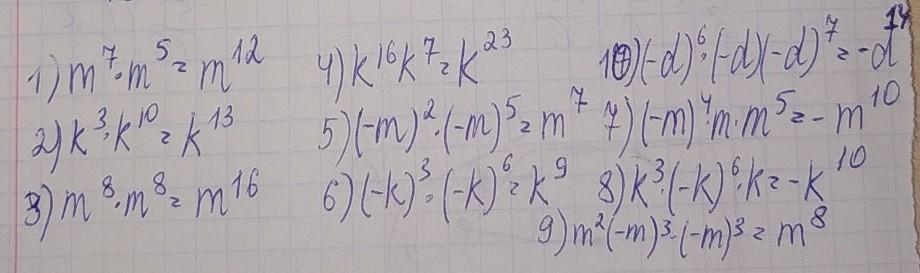 1) m⁷·m⁵=m¹²
2) k³·k¹⁰=k¹³
3) m⁸·m⁸=m¹⁶
4) k¹⁶k⁷=k²³
5) (-m)²·(-m)⁵=m⁷
6) (-k)³·(-k)⁶=k⁹
10) (-d)⁶·(-d)(-d)⁷=-d¹⁴
7) (-m)⁴·m·m⁵=-m¹⁰
8) k³·(-k)⁶·k=-k¹⁰
9) m²(-m)³·(-m)³=m⁸